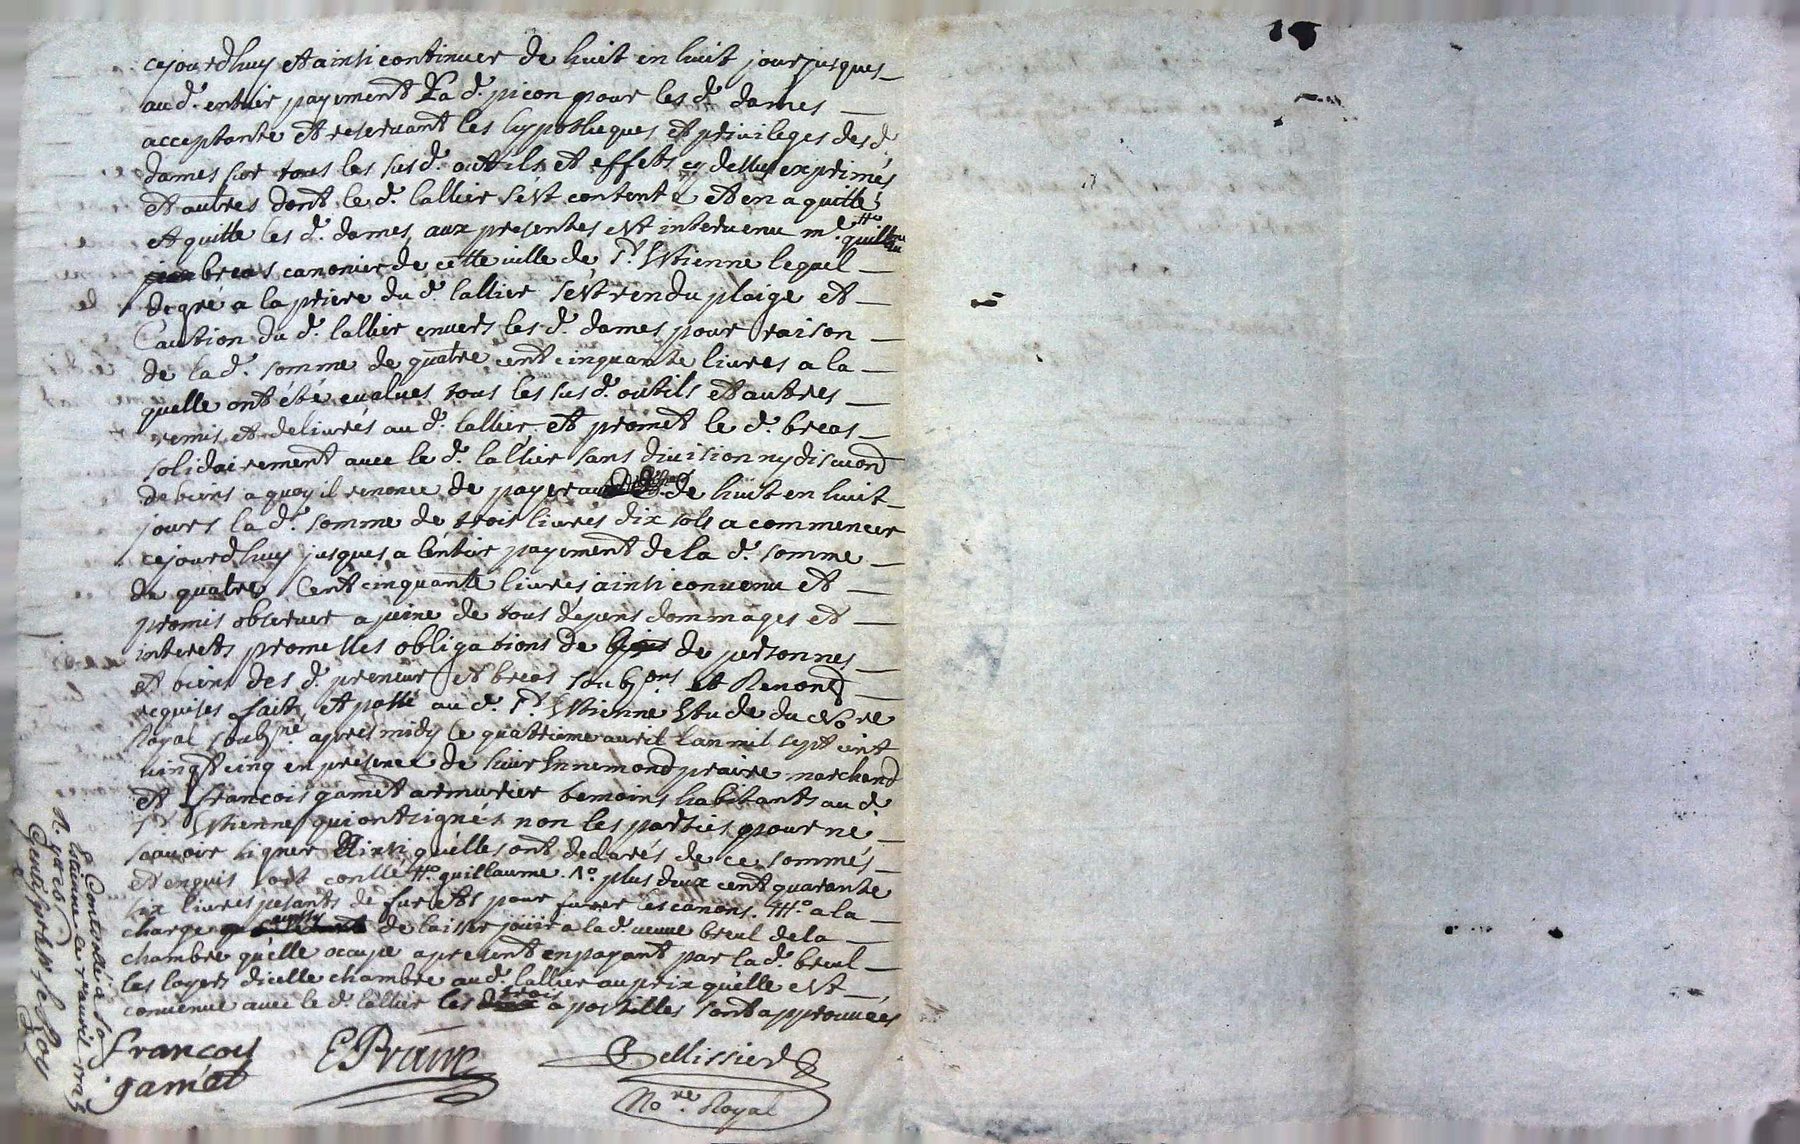 cejourdhuy et ainsi continuer de huit en huit jour jusques
au d. entier payement La d. picon pour les d. dames
acceptante et reservant les hypotheques et privileges des d.
dames sur tous les susd. outtils et effets cy dessus exprimés
et autres dont le d. lallier sest contenté et en a quitté
et quitte les d. dames, aux presentes est intervenu m.e #o guillaume
breas canonier de cette ville de St. Estienne lequel
de gré a la priere du d. lallier sest rendu plaige et
Caution du d. lallier envers les d. dames pour raison
de la d. somme de quatre cent cinquante livres a la
quelle ont été evalues tous les susd. outils et autres
remis et delivrés au d. lallier et promet le d. breas
solidairement avec le d. lallier sans division ny discuond
de biens a quoy il renonce de payer de huit en huit
jours la d. somme de trois livres dix sols a commencer
cejourdhuy jusques a lentier payement de la d. somme
de quatre Cent cinquante livres ainsi convenu et
promis observer a peine de tous depens dommages et
interets promesses obligations de de personnes
et biens des d. preneur et breas soubons et Renond
requises fait et passé au d. St Estienne Estude du No.re
Royal soubne apres midy le quatrieme avril lan mil sept cent
vingt cinq en présence de Ennemond praire marchand
et françois gamet armurier temoins habitants au d.
St Estienne qui ont signés non les parties pour ne
scavoir signer Ainsi quelles ont declarés de ce sommés
et enquis #o guillaume. 1o plus deux cent quarante
six livres pesants de forets pour forer les canons. #o a la
charge aussy de laisser jouir a la d. veuve breul de la
chambre quelle occupe a present en payant par la d. breul
les loyers dicelle chambre au d. lallier au prix quelle est
convenue avec le d. lallier les trois apostilles sont approuvées
francoys
gamet
EPraire
Pellissier
No.re Royal
Controlé a St
Estienne le avril 1725
R.